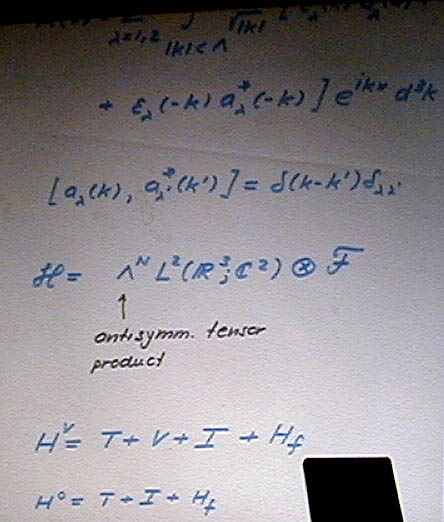 λ=1,2 |k|<Λ √|k|
+ ε_λ(-k) a*_λ(-k) ] e^{ikx} d³k
[a_λ(k), a*_λ'(k')] = δ(k-k')δ_λλ'
ℋ = Λ^N L²(ℝ³;ℂ²) ⊗ ℱ
↑
antisymm. tensor
product
H^V = T + V + I + H_f
H^0 = T + I + H_f